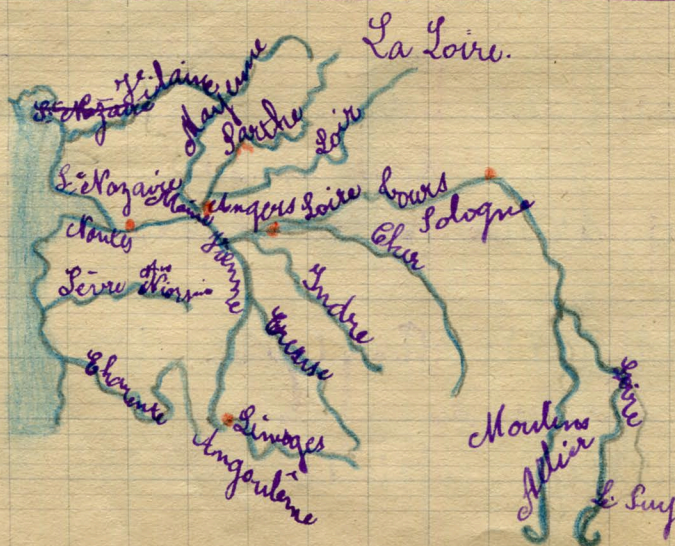 La Loire.
Vilaine
St Nazaire
Mayenne
Sarthe
Loir
St Nazaire
Maine
Angers
Loire
Tours
Sologne
Nantes
Vienne
Cher
Sèvre Niortaise
Indre
Creuse
Charente
Limoges
Angoulême
Loire
Moulins
Allier
Le Puy